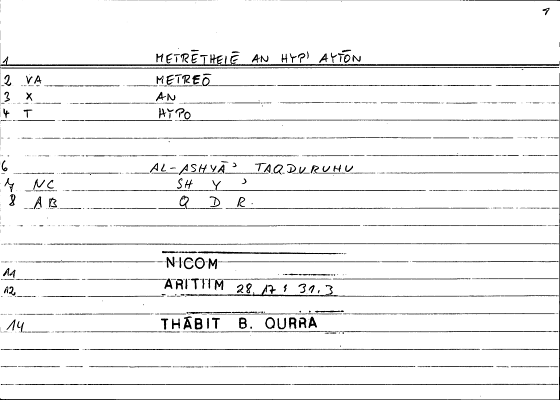 1
1 METRĒTHEIĒ AN HYP' AYTŌN
2 VA METREŌ
3 X AN
4 T HYPO
6 AL-ASHYĀ' TAQDURUHU
7 NC SH Y '
8 AB Q D R.
11 NICOM
12 ARITIIM 28,17 ; 31.3
14 THĀBIT B. QURRA